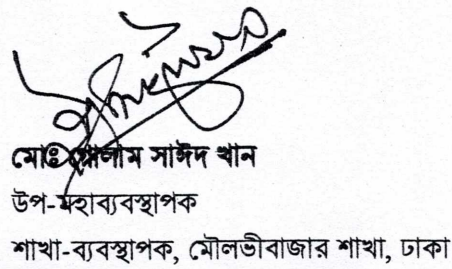 মোঃ গোলাম সাঈদ খান
উপ-মহাব্যবস্থাপক
শাখা-ব্যবস্থাপক, মৌলভীবাজার শাখা, ঢাকা